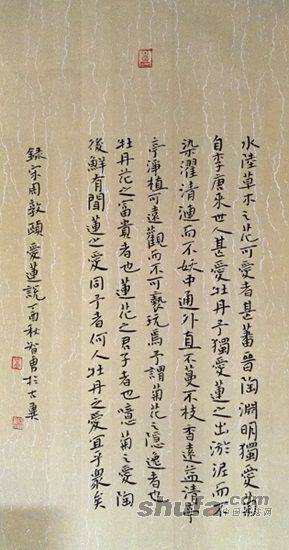 水陸草木之花可愛者甚蕃晉陶淵明獨愛菊
自李唐來世人甚愛牡丹予獨愛蓮之出淤泥而不
染濯清漣而不妖中通外直不蔓不枝香遠益清亭
亭淨植可遠觀而不可褻玩焉予謂菊花之隱逸者也
牡丹花之富貴者也蓮花之君子者也噫菊之愛陶
後鮮有聞蓮之愛同予者何人牡丹之愛宜乎眾矣
錄宋周敦頤愛蓮說丁酉秋智勇於古冀
shufa.com